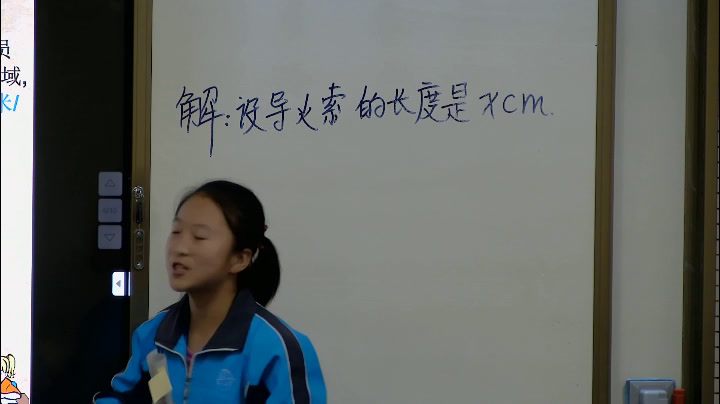 员
域,
长/
解:设导火索的长度是xcm.